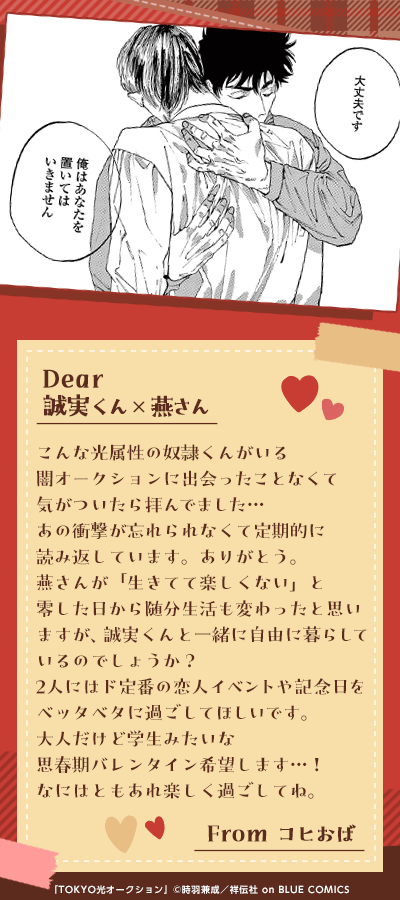 大丈夫です
俺はあなたを
置いては
いきません
Dear
誠実くん×燕さん
こんな光属性の奴隷くんがいる
闇オークションに出会ったことなくて
気がついたら拝んでました…
あの衝撃が忘れられなくて定期的に
読み返しています。ありがとう。
燕さんが「生きてて楽しくない」と
零した日から随分生活も変わったと思い
ますが、誠実くんと一緒に自由に暮らして
いるのでしょうか？
2人にはド定番の恋人イベントや記念日を
ベッタベタに過ごしてほしいです。
大人だけど学生みたいな
思春期バレンタイン希望します…！
なにはともあれ楽しく過ごしてね。
From コヒおば
「TOKYO光オークション」©時羽兼成／祥伝社 on BLUE COMICS